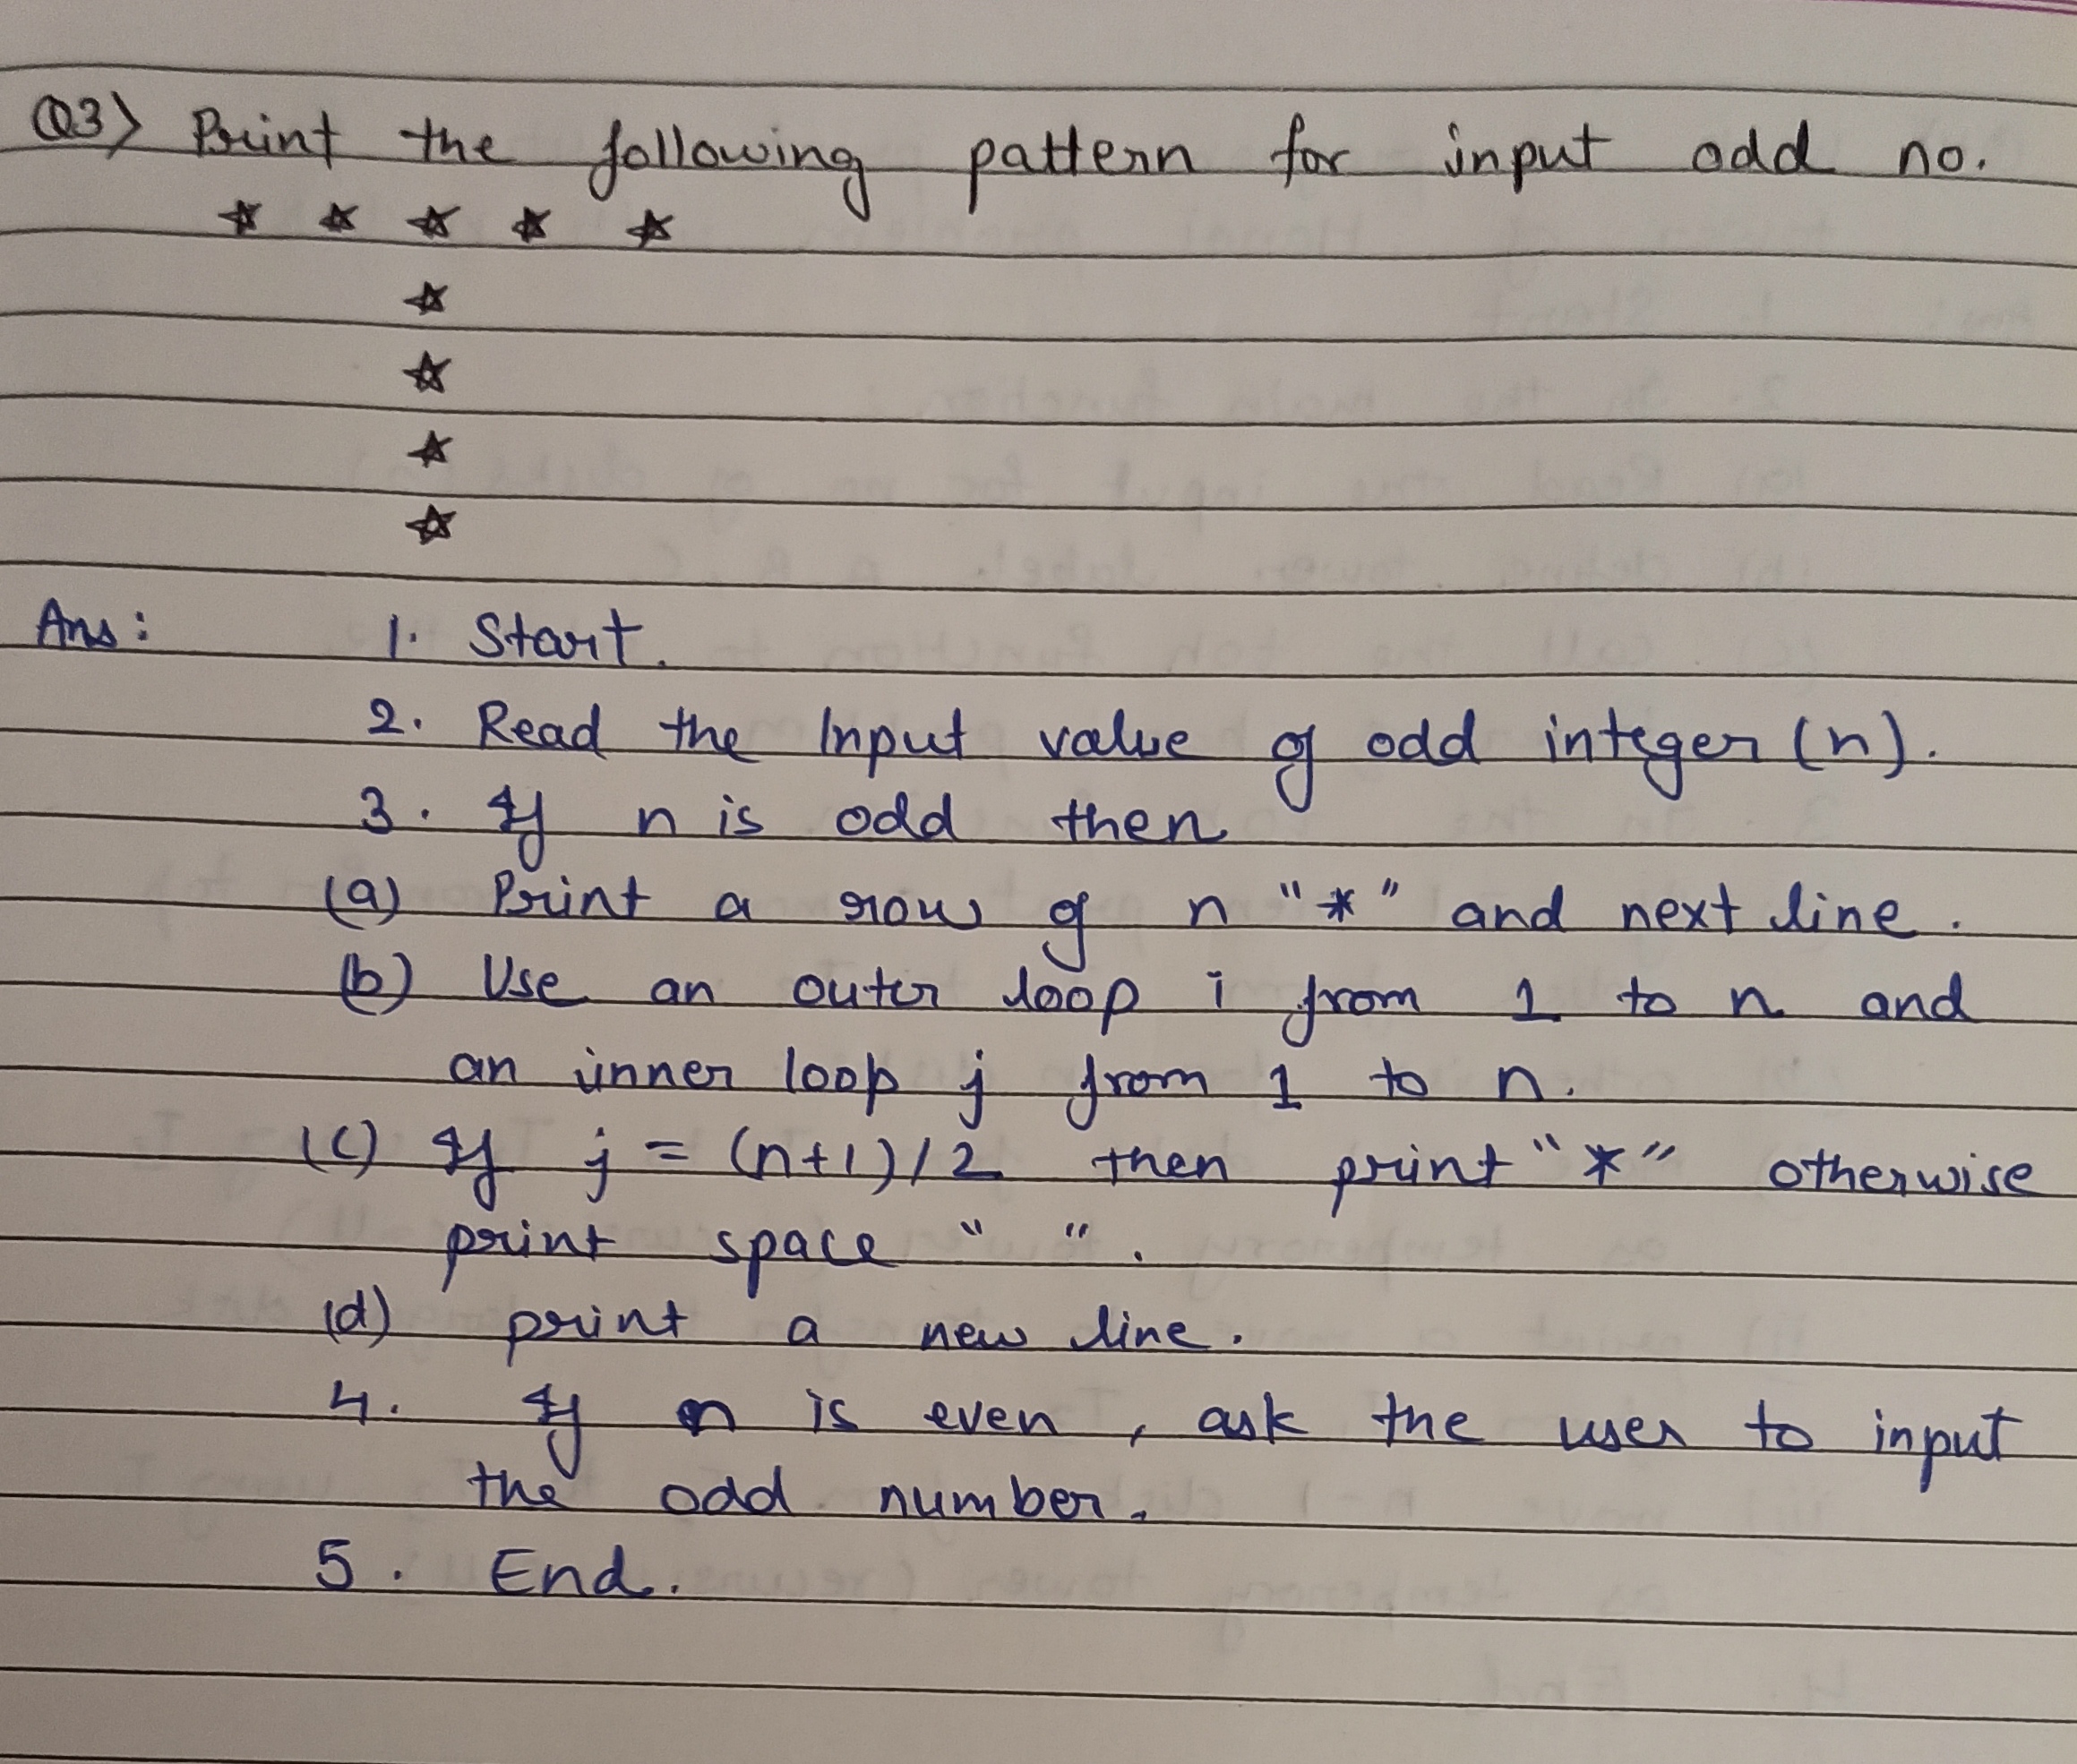 Q3) Print the following pattern for input odd no.
☆ ☆ ☆ ☆ ☆
☆
☆
☆
☆
Ans: 1. Start.
2. Read the Input value of odd integer (n).
3. If n is odd then
(a) Print a row of n "*" and next line.
(b) Use an outer loop i from 1 to n and
an inner loop j from 1 to n.
(c) If j = (n+1)/2 then print "*" otherwise
print space " ".
(d) print a new line.
4. If n is even, ask the user to input
the odd number.
5. End.